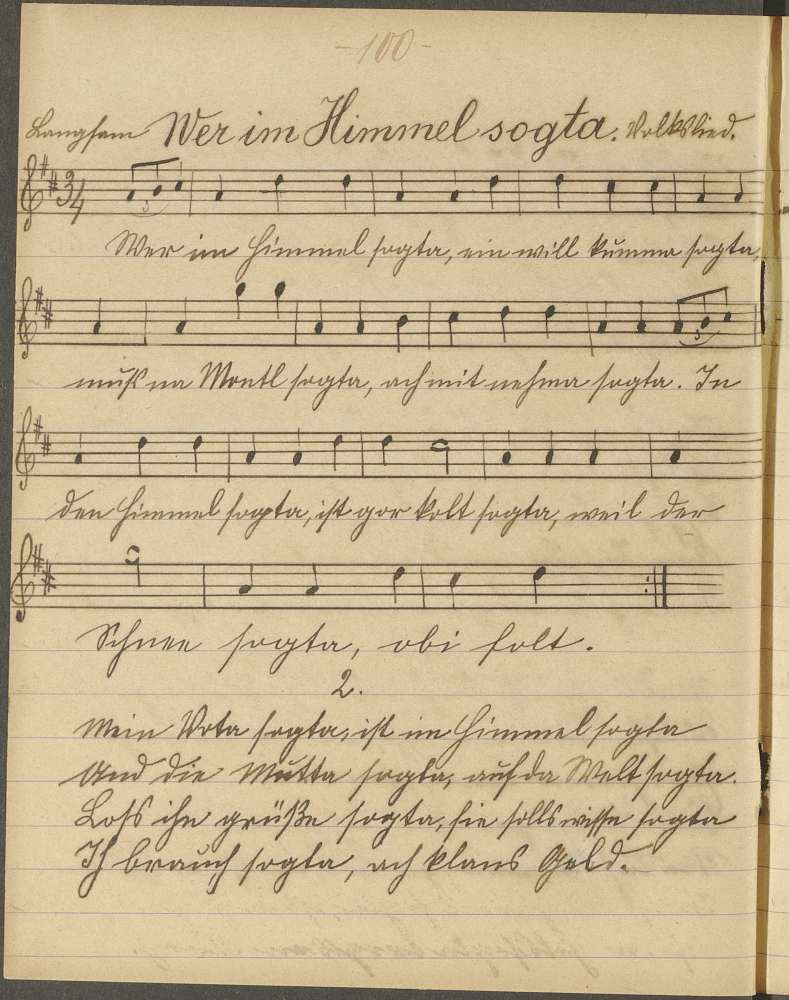 -100-
Langsam Wer im Himmel sogta. Volkslied.
3/4
3
Wer im Himmel sogta, ein will kumma sogta,
3
muß na Montl sogta, ach mit nehma sogta. In
den Himmel sogta, ist gor kolt sogta, weil der
Schnee sogta, obi folt.
2.
Mein Vota sogta, ist im Himmel sogta
Und die Mutta sogta, auf da Welt sogta.
Loß ihn grüße sogta, sie solls wisse sogta
Ich brauch sogta, ach klans Geld.